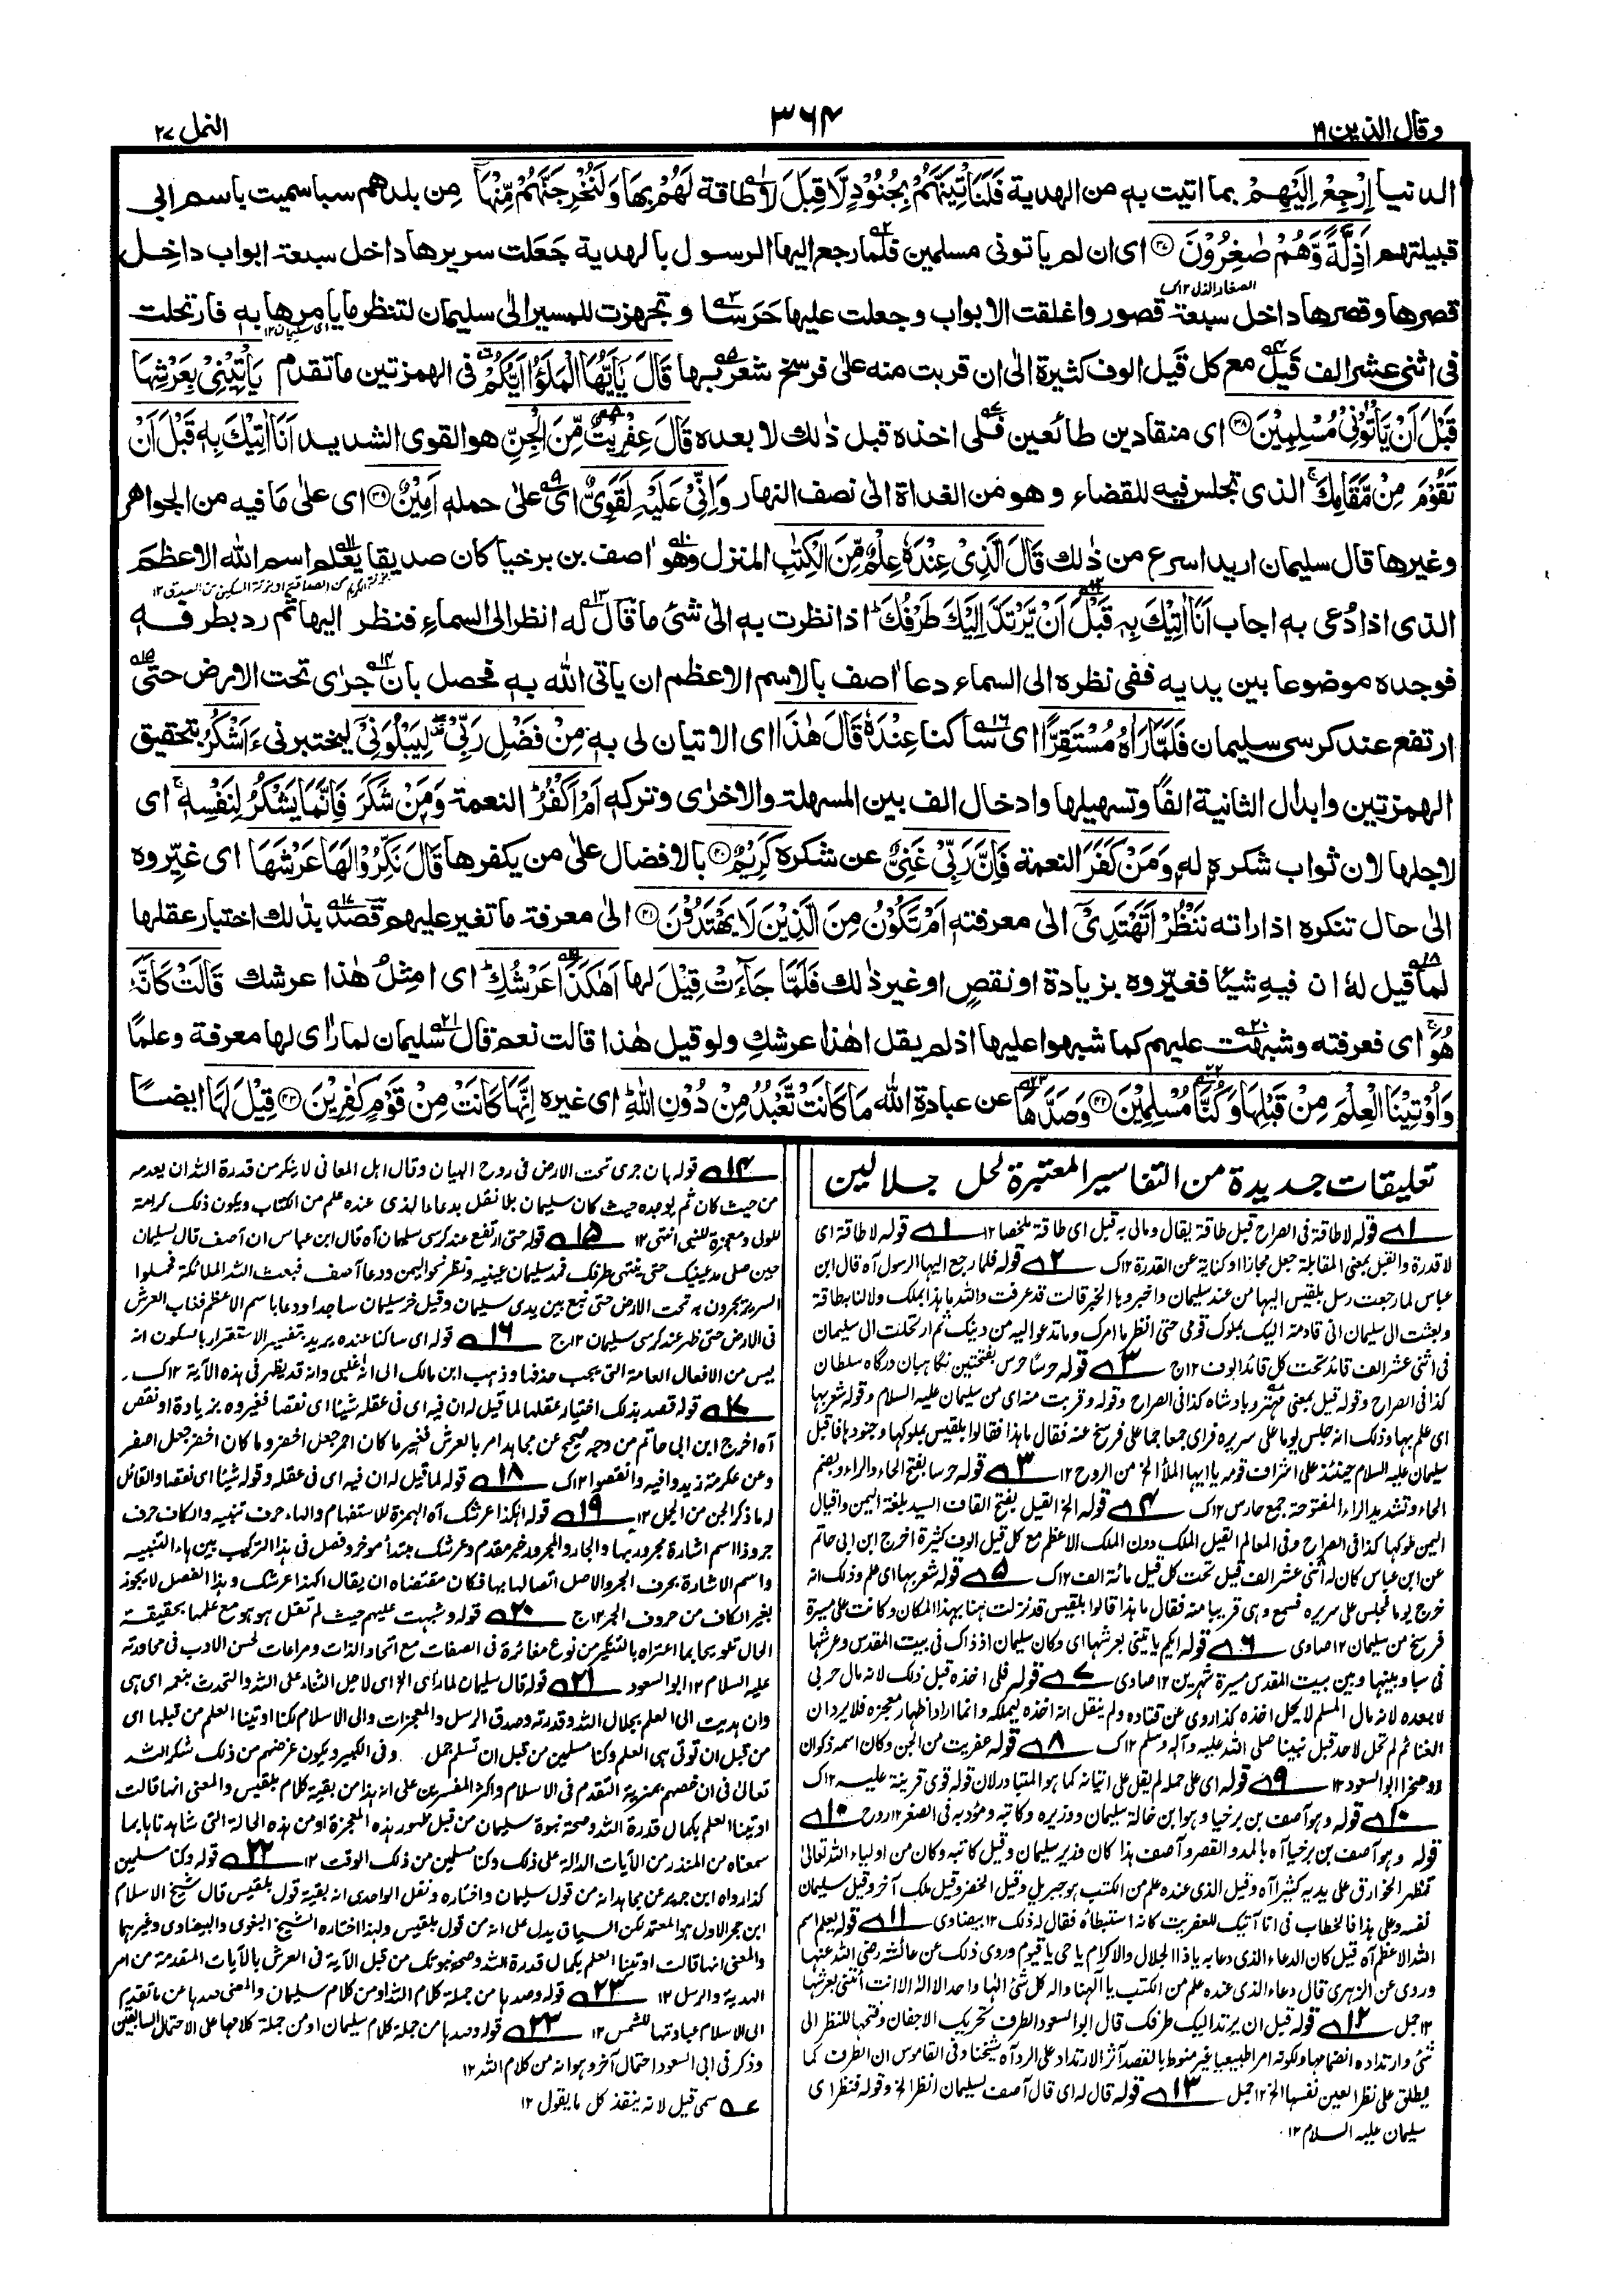 وقال الذين ۱۹
۳۶۴
النمل ۲۷
الدنيا اِرْجِعْ اِلَيْهِمْ بما اتيت به من الهدية فَلَنَاْتِيَنَّهُمْ بِجُنُوْدٍ لَّا قِبَلَ لا طاقة لَهُمْ بِهَا وَلَنُخْرِجَنَّهُمْ مِّنْهَا من بلدهم سبا سميت باسم ابى
قبيلتهم اَذِلَّةً وَّهُمْ صٰغِرُوْنَ ۝۳۷ اى ان لم ياتونى مسلمين فلما رجع اليها الرسول بالهدية جعلت سريرها داخل سبعة ابواب داخل
قصرها وقصرها داخل سبعة قصور واغلقت الابواب وجعلت عليها حَرَسا وتجهزت للمسير الى سليمان لتنظر ما يامرها به فارتحلت
فى اثنى عشر الف قَيل مع كل قَيل الوف كثيرة الى ان قربت منه على فرسخ شعر بها قَالَ يٰٓاَيُّهَا الْمَلَؤُا اَيُّكُمْ فى الهمزتين ما تقدم يَاْتِيْنِيْ بِعَرْشِهَا
قَبْلَ اَنْ يَّاْتُوْنِيْ مُسْلِمِيْنَ ۝۳۸ اى منقادين طائعين فلى اخذه قبل ذلك لا بعده قَالَ عِفْرِيْتٌ مِّنَ الْجِنِّ هو القوى الشديد اَنَا اٰتِيْكَ بِهٖ قَبْلَ اَنْ
تَقُوْمَ مِنْ مَّقَامِكَ الذى تجلس فيه للقضاء وهو من الغداة الى نصف النهار وَاِنِّيْ عَلَيْهِ لَقَوِيٌّ اى على حمله اَمِيْنٌ ۝۳۹ اى على ما فيه من الجواهر
وغيرها قال سليمان اريد اسرع من ذلك قَالَ الَّذِيْ عِنْدَهٗ عِلْمٌ مِّنَ الْكِتٰبِ المنزل وهو اٰصف بن برخيا كان صديقا يعلم اسم الله الاعظم
الذى اذا دُعى به اجاب اَنَا اٰتِيْكَ بِهٖ قَبْلَ اَنْ يَّرْتَدَّ اِلَيْكَ طَرْفُكَ اذا نظرت به الى شئ ما قال له انظر الى السماء فنظر اليها ثم رد بطرفه
فوجده موضوعا بين يديه ففى نظره الى السماء دعا اٰصف بالاسم الاعظم ان ياتى الله به فحصل بان جرى تحت الارض حتى
ارتفع عند كرسى سليمان فَلَمَّا رَاٰهُ مُسْتَقِرًّا اى ساكنا عِنْدَهٗ قَالَ هٰذَا اى الاتيان لى به مِنْ فَضْلِ رَبِّيْ لِيَبْلُوَنِيْ ليختبرنى ءَاَشْكُرُ بتحقيق
الهمزتين وابدال الثانية الفا وتسهيلها وادخال الف بين المسهلة والاخرى وتركه اَمْ اَكْفُرُ النعمة وَمَنْ شَكَرَ فَاِنَّمَا يَشْكُرُ لِنَفْسِهٖ اى
لاجلها لان ثواب شكره له وَمَنْ كَفَرَ النعمة فَاِنَّ رَبِّيْ غَنِيٌّ عن شكره كَرِيْمٌ ۝۴۰ بالافضال على من يكفرها قَالَ نَكِّرُوْا لَهَا عَرْشَهَا اى غيّروه
الى حال تنكره اذا راته نَنْظُرْ اَتَهْتَدِيْٓ الى معرفته اَمْ تَكُوْنُ مِنَ الَّذِيْنَ لَا يَهْتَدُوْنَ ۝۴۱ الى معرفة ما تغير عليهم قصد بذلك اختبار عقلها
لما قيل له ان فيه شيئا فغيّروه بزيادة او نقص او غير ذلك فَلَمَّا جَآءَتْ قِيْلَ لها اَهٰكَذَا عَرْشُكِ اى امثل هذا عرشك قَالَتْ كَاَنَّهٗ
هُوَ اى فعرفته وشبهت عليهم كما شبهوا عليها اذ لم يقل اهذا عرشك ولو قيل هذا قالت نعم قال سليمان لما راى لها معرفة وعلما
وَاُوْتِيْنَا الْعِلْمَ مِنْ قَبْلِهَا وَكُنَّا مُسْلِمِيْنَ ۝۴۲ وَصَدَّهَا عن عبادة الله مَا كَانَتْ تَّعْبُدُ مِنْ دُوْنِ اللهِ اى غيره اِنَّهَا كَانَتْ مِنْ قَوْمٍ كٰفِرِيْنَ ۝۴۳ قِيْلَ لَهَا ايضا
تعليقات جديدة من التفاسير المعتبرة لحل جلالين
۱ قوله لا طاقة فى الصراح قبل طاقة يقال ومالى به قبل اى طاقة ملخصا ۱۲ ۱ قوله لا طاقة اى
لا قدرة والقبل بمعنى المقابلة جعل مجازا او كناية عن القدرة ۱۲ك ۲ قوله فلما رجع اليها الرسول آه قال ابن
عباس لما رجعت رسل بلقيس اليها من عند سليمان واخبروها الخبر قالت قد عرفت والله ما هذا بملك ولا لنا به طاقة
وبعثت الى سليمان انى قادمة اليك بملوك قومى حتى انظر ما امرك وما تدعو اليه من دينك ثم ارتحلت الى سليمان
فى اثنى عشر الف قائد تحت كل قائد الوف ۱۲ج ۳ قوله حرسا حرس بفتحتين نگاهبان درگاه سلطان
كذا فى الصراح وقوله قيل بمعنى مهتر وبادشاه كذا فى الصراح وقوله وقربت منه اى من سليمان عليه السلام وقوله شعر بها
اى علم بها وذلك انه جلس يوما على سريره فراى جمعا جما على فرسخ عنه فقال ما هذا فقالوا بلقيس بملوكها وجنودها فاقبل
سليمان عليه السلام حينئذ على اشراف قومه يا ايها الملأ الخ من الروح ۱۲ ۳ قوله حرسا بفتح الحاء والراء وبضم
الحاء وتشديد الراء المفتوحة جمع حارس ۱۲ك ۴ قوله الخ القيل بفتح القاف السيد بلغة اليمن واقيال
اليمن ملوكها كذا فى الصراح وفى المعالم القيل الملك دون الملك الاعظم مع كل قيل الوف كثيرة اخرج ابن ابى حاتم
عن ابن عباس كان له اثنى عشر الف قيل تحت كل قيل مائة الف ۱۲ك ۵ قوله شعر بها اى علم وذلك انه
خرج يوما فجلس على سريره فسمع وهى قريبا منه فقال ما هذا قالوا بلقيس قد نزلت هنا بهذا المكان وكانت على مسيرة
فرسخ من سليمان ۱۲ صاوى ۶ قوله ايكم ياتينى بعرشها اى وكان سليمان اذ ذاك فى بيت المقدس وعرشها
فى سبا وبينها وبين بيت المقدس مسيرة شهرين ۱۲ صاوى ۷ قوله فلى اخذه قبل ذلك لانه مال حربى
لا بعده لانه مال المسلم لا يحل اخذه كذا روى عن قتاده ولم ينقل انه اخذه يملكه وانما اراد اظهار معجزه فلا يرد ان
الغنائم لم تحل لاحد قبل نبينا صلى الله عليه وآله وسلم ۱۲ك ۸ قوله عفريت من الجن وكان اسمه ذكوان
او صخرا ابو السعود ۱۲ ۹ قوله اى على حمله لم يقل على اتيانه كما هو المتبادر لان قوله قوى قرينة عليه ۱۲ك
۱۰ قوله وهو آصف بن برخيا وهو ابن خالة سليمان ووزيره وكاتبه ومؤدبه فى الصغر ۱۲ روح ۱۰
قوله وهو آصف بن برخيا آه بالمد والقصر وآصف هذا كان وزير سليمان وقيل كاتبه وكان من اولياء الله تعالى
تظهر الخوارق على يديه كثيرا آه وقيل الذى عنده علم من الكتب هو جبريل وقيل الخضر وقيل ملك آخر وقيل سليمان
نفسه وعلى هذا فالخطاب فى انا آتيك للعفريت كانه استبطأه فقال له ذلك ۱۲ بيضاوى ۱۱ قوله يعلم اسم
الله الاعظم آه قيل كان الدعاء الذى دعا به يا ذا الجلال والاكرام يا حى يا قيوم وروى ذلك عن عائشة رضى الله عنها
وروى عن الزهرى قال دعاء الذى عنده علم من الكتب يا الهنا واله كل شئ الها واحدا لا اله الا انت ائتنى بعرشها
۱۲ جمل ۱۲ قوله قبل ان يرتد اليك طرفك قال ابو السعود الطرف تحريك الاجفان وفتحها للنظر الى
شئ وارتداده انضمامها ولكونه امرا طبيعيا غير منوط بالقصد آثر الارتداد على الرد آه شيخنا وفى القاموس ان الطرف كما
يطلق على نظر العين نفسها الخ ۱۲ جمل ۱۳ قوله قال له اى قال آصف لسليمان انظر الخ وقوله فنظر اى
سليمان عليه السلام ۱۲
۱۴ قوله بان جرى تحت الارض فى روح البيان وقال اهل المعانى لا ينكر من قدرة الله ان يعدمه
من حيث كان ثم يوجده حيث كان سليمان بلا نقل بدعاء الذى عنده علم من الكتاب ويكون ذلك كرامة
للولى ومعجزة للنبى انتهى ۱۲ ۱۵ قوله حتى ارتفع عند كرسى سليمان آه قال ابن عباس ان آصف قال لسليمان
حين صلى مد عينيك حتى ينتهى طرفك فمد سليمان عينيه ونظر نحو اليمن ودعا آصف فبعث الله الملائكة فحملوا
السرير يجرون به تحت الارض حتى نبع بين يدى سليمان وقيل خر سليمان ساجدا ودعا باسم الاعظم فغاب العرش
فى الارض حتى ظهر عند كرسى سليمان ۱۲ج ۱۶ قوله اى ساكنا عنده يريد بتفسير الاستقرار بالسكون انه
ليس من الافعال العامة التى يجب حذفها وذهب ابن مالك الى انه اغلبى وانه قد يظهر فى هذه الآية ۱۲ك
۱۷ قوله قصد بذلك اختبار عقلها لما قيل له ان فيه اى فى عقله شيئا اى نقصا فغيروه بزيادة او نقص
آه اخرج ابن ابى حاتم من وجه صحيح عن مجاهد امر بالعرش فغير ما كان احمر جعل اخضر وما كان اخضر جعل اصفر
وعن عكرمة زيدوا فيه وانقصوا ۱۲ك ۱۸ قوله لما قيل له ان فيه اى فى عقله وقوله شيئا اى نقصا والقائل
له ما ذكر الجن من الجمل ۱۲ ۱۹ قوله اهكذا عرشك آه الهمزة للاستفهام والهاء حرف تنبيه والكاف حرف
جر وذا اسم اشارة مجرور بها والجار والمجرور خبر مقدم وعرشك مبتدأ مؤخر وفصل فى هذا التركيب بين هاء التنبيه
واسم الاشارة بحرف الجر والاصل اتصالها بها فكان مقتضاه ان يقال اكهذا عرشك وهذا الفصل لا يجوز
بغير الكاف من حروف الجر ۱۲ج ۲۰ قوله وشبهت عليهم حيث لم تقل هو هو مع علمها بحقيقة
الحال تلويحا بما اعتراه بالتنكير من نوع مغائرة فى الصفات مع اتحاد الذات ومراعات لحسن الادب فى محاورته
عليه السلام ۱۲ ابو السعود ۲۱ قوله قال سليمان لما رأى الخ اى لاجل الثناء على الله والتحدث بنعمه اى هى
وان هديت الى العلم بجلال الله وقدرته وصدق الرسل والمعجزات والى الاسلام لكنا اوتينا العلم من قبلها اى
من قبل ان تؤتى هى العلم وكنا مسلمين من قبل ان تسلم جمل وفى الكبير ويكون غرضهم من ذلك شكر الله
تعالى فى ان خصهم بمزية التقدم فى الاسلام واكثر المفسرين على انه هذا من بقية كلام بلقيس والمعنى انها قالت
اوتينا العلم بكمال قدرة الله وصحة نبوة سليمان من قبل ظهور هذه المعجزة او من هذه الحالة التى شاهدناها بما
سمعناه من المنذر من الآيات الدالة على ذلك وكنا مسلمين من ذلك الوقت ۱۲ ۲۲ قوله وكنا مسلمين
كذا رواه ابن جرير عن مجاهد انه من قول سليمان واختاره ونقل الواحدى انه بقية قول بلقيس قال شيخ الاسلام
ابن حجر الاول هو المعتمد لكن السياق يدل على انه من قول بلقيس ولهذا اختاره الشيخ البغوى والبيضاوى وغيرهما
والمعنى انها قالت اوتينا العلم بكمال قدرة الله وصحة نبوتك من قبل الآية فى العرش بالآيات المتقدمة من امر
الهدية والرسل ۱۲ ۲۳ قوله وصدها من جملة كلام الله او من كلام سليمان والمعنى صدها عن ما تقدم
الى الاسلام عبادتها للشمس ۱۲ ۲۳ قوله وصدها من جملة كلام سليمان او من جملة كلامها على الاحتمال السابقين
وذكر فى ابى السعود احتمال آخر وهو انه من كلام الله ۱۲
عه سمى قيل لانه ينفذ كل ما يقول ۱۲